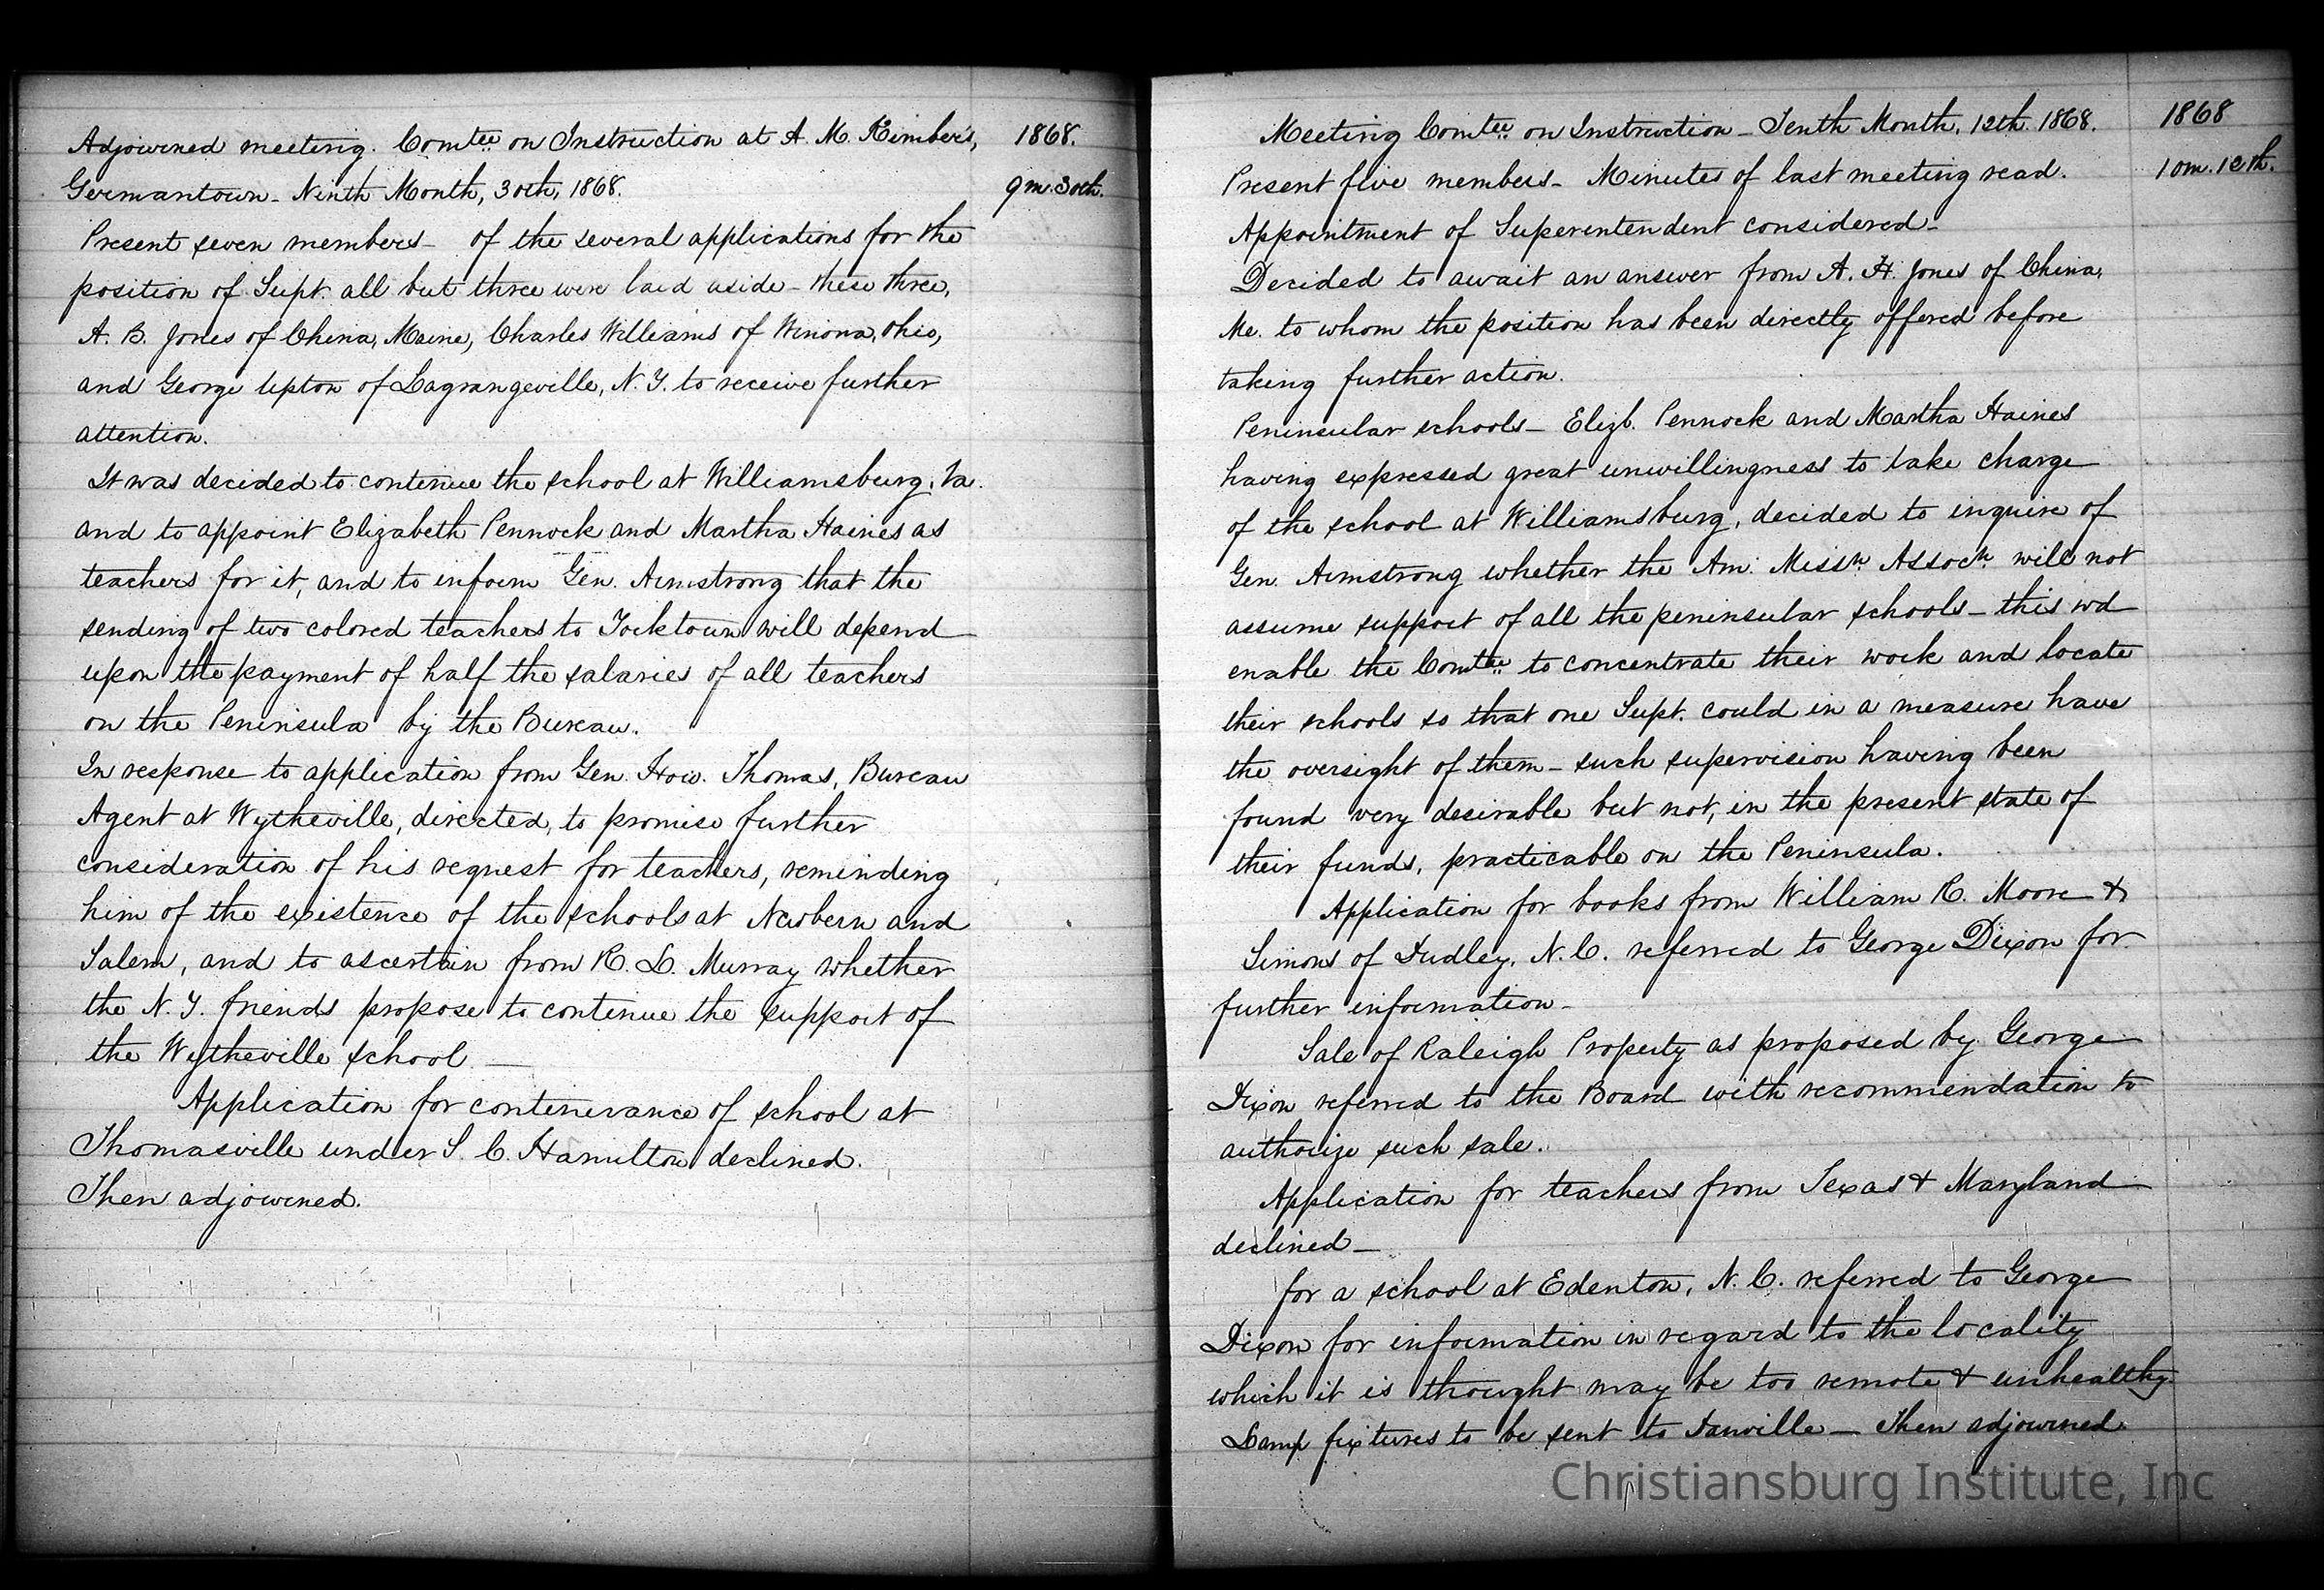 Adjourned meeting. Comtee on Instruction at A. M. Kimber's,
Germantown - Ninth Month, 30th, 1868.
1868.
9m. 30th.
Present seven members - of the several applications for the
position of Supt. all but three were laid aside - these three,
A. B. Jones of China, Maine, Charles Williams of Winona, Ohio,
and George Upton of Lagrangeville, N. Y. to receive further
attention.
It was decided to continue the school at Williamsburg, Va.
and to appoint Elizabeth Pennock and Martha Haines as
teachers for it, and to inform Gen. Armstrong that the
sending of two colored teachers to Yorktown will depend
upon the payment of half the salaries of all teachers
on the Peninsula by the Bureau.
In response to application from Gen. How. Thomas, Bureau
Agent at Wytheville, directed, to promise further
consideration of his request for teachers, reminding
him of the existence of the schools at Newbern and
Salem, and to ascertain from R. L. Murray whether
the N. Y. friends propose to continue the support of
the Wytheville school —
Application for continuance of school at
Thomasville under S. C. Hamilton declined.
Then adjourned.
Meeting Comtee on Instruction - Tenth Month, 12th 1868.
1868
10m. 12th.
Present five members - Minutes of last meeting read.
Appointment of Superintendent considered -
Decided to await an answer from A. H. Jones of China,
Me. to whom the position has been directly offered before
taking further action.
Peninsular schools - Elizb. Pennock and Martha Haines
having expressed great unwillingness to take charge
of the school at Williamsburg, decided to inquire of
Gen. Armstrong whether the Am. Missn Assocn will not
assume support of all the peninsular schools - this wd
enable the Comtee to concentrate their work and locate
their schools so that one Supt. could in a measure have
the oversight of them - such supervision having been
found very desirable but not, in the present state of
their funds, practicable on the Peninsula.
Application for books from William R. Moore &
Simons of Dudley, N. C. referred to George Dixon for
further information -
Sale of Raleigh Property as proposed by George
Dixon referred to the Board with recommendation to
authorize such sale.
Application for teachers from Texas & Maryland
declined -
for a school at Edenton, N. C. referred to George
Dixon for information in regard to the locality
which it is thought may be too remote & unhealthy.
Lamp fixtures to be sent to Danville - Then adjourned.
Christiansburg Institute, Inc